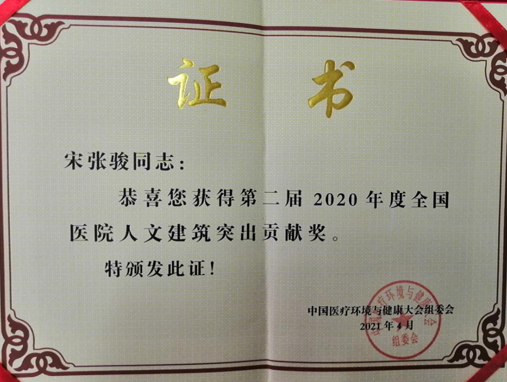 证 书
宋张骏同志：
恭喜您获得第二届 2020 年度全国
医院人文建筑突出贡献奖。
特颁发此证！
中国医疗环境与健康大会组委会
2021 年 4 月
组委会